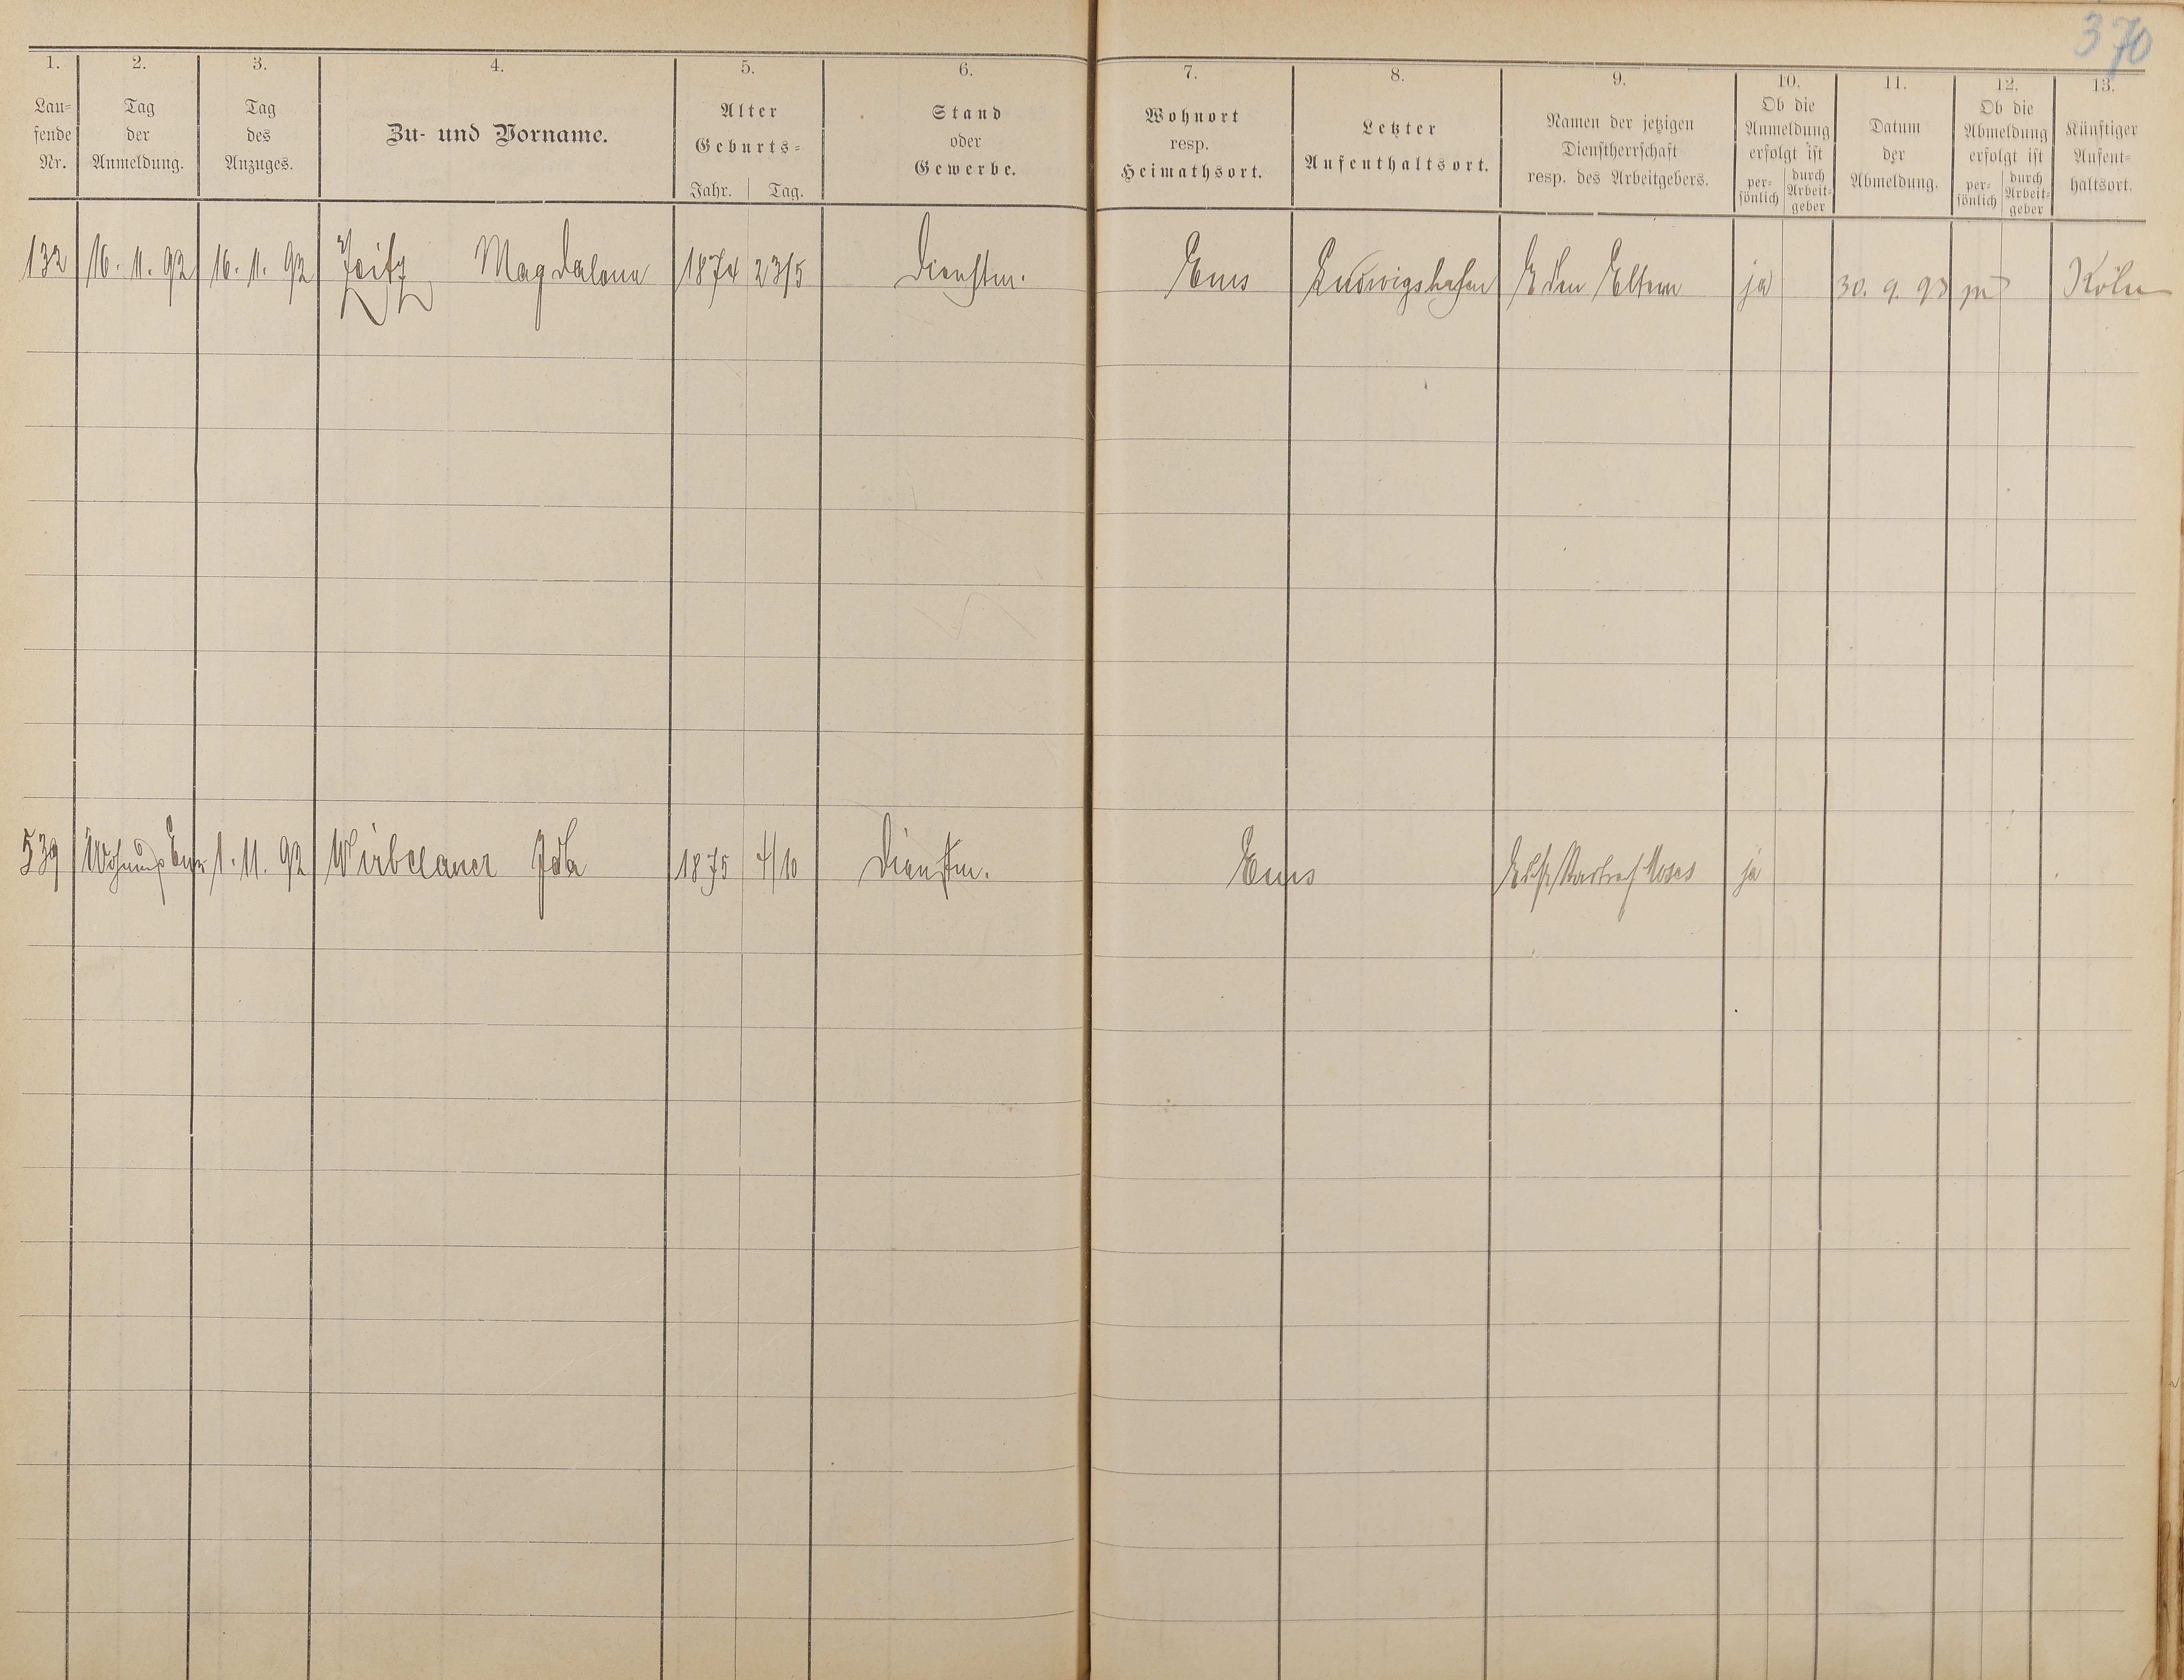 370
1. 2. 3. 4. 5. 6. 7. 8. 9. 10. 11. 12. 13.
Lau-
fende
Nr.
Tag
der
Anmeldung.
Tag
des
Anzuges.
Zu- und Vorname.
Alter
Geburts-
Jahr. Tag.
Stand
oder
Gewerbe.
Wohnort
resp.
Heimathsort.
Letzter
Aufenthaltsort.
Namen der jetzigen
Dienstherrschaft
resp. des Arbeitgebers.
Ob die
Anmeldung
erfolgt ist
per-
sönlich
durch
Arbeit-
geber
Datum
der
Abmeldung.
Ob die
Abmeldung
erfolgt ist
per-
sönlich
durch
Arbeit-
geber
Künftiger
Aufent-
haltsort.
132 16. 11. 92 16. 11. 92 Magdalena 1874 23/5 Dienstm. Ems Ludwigshafen den Eltern ja 30. 9. 93 Köln
539 1. 11. 92 Wirbelauer Ida 1875 4/10 Dienstm. Ems Moses ja